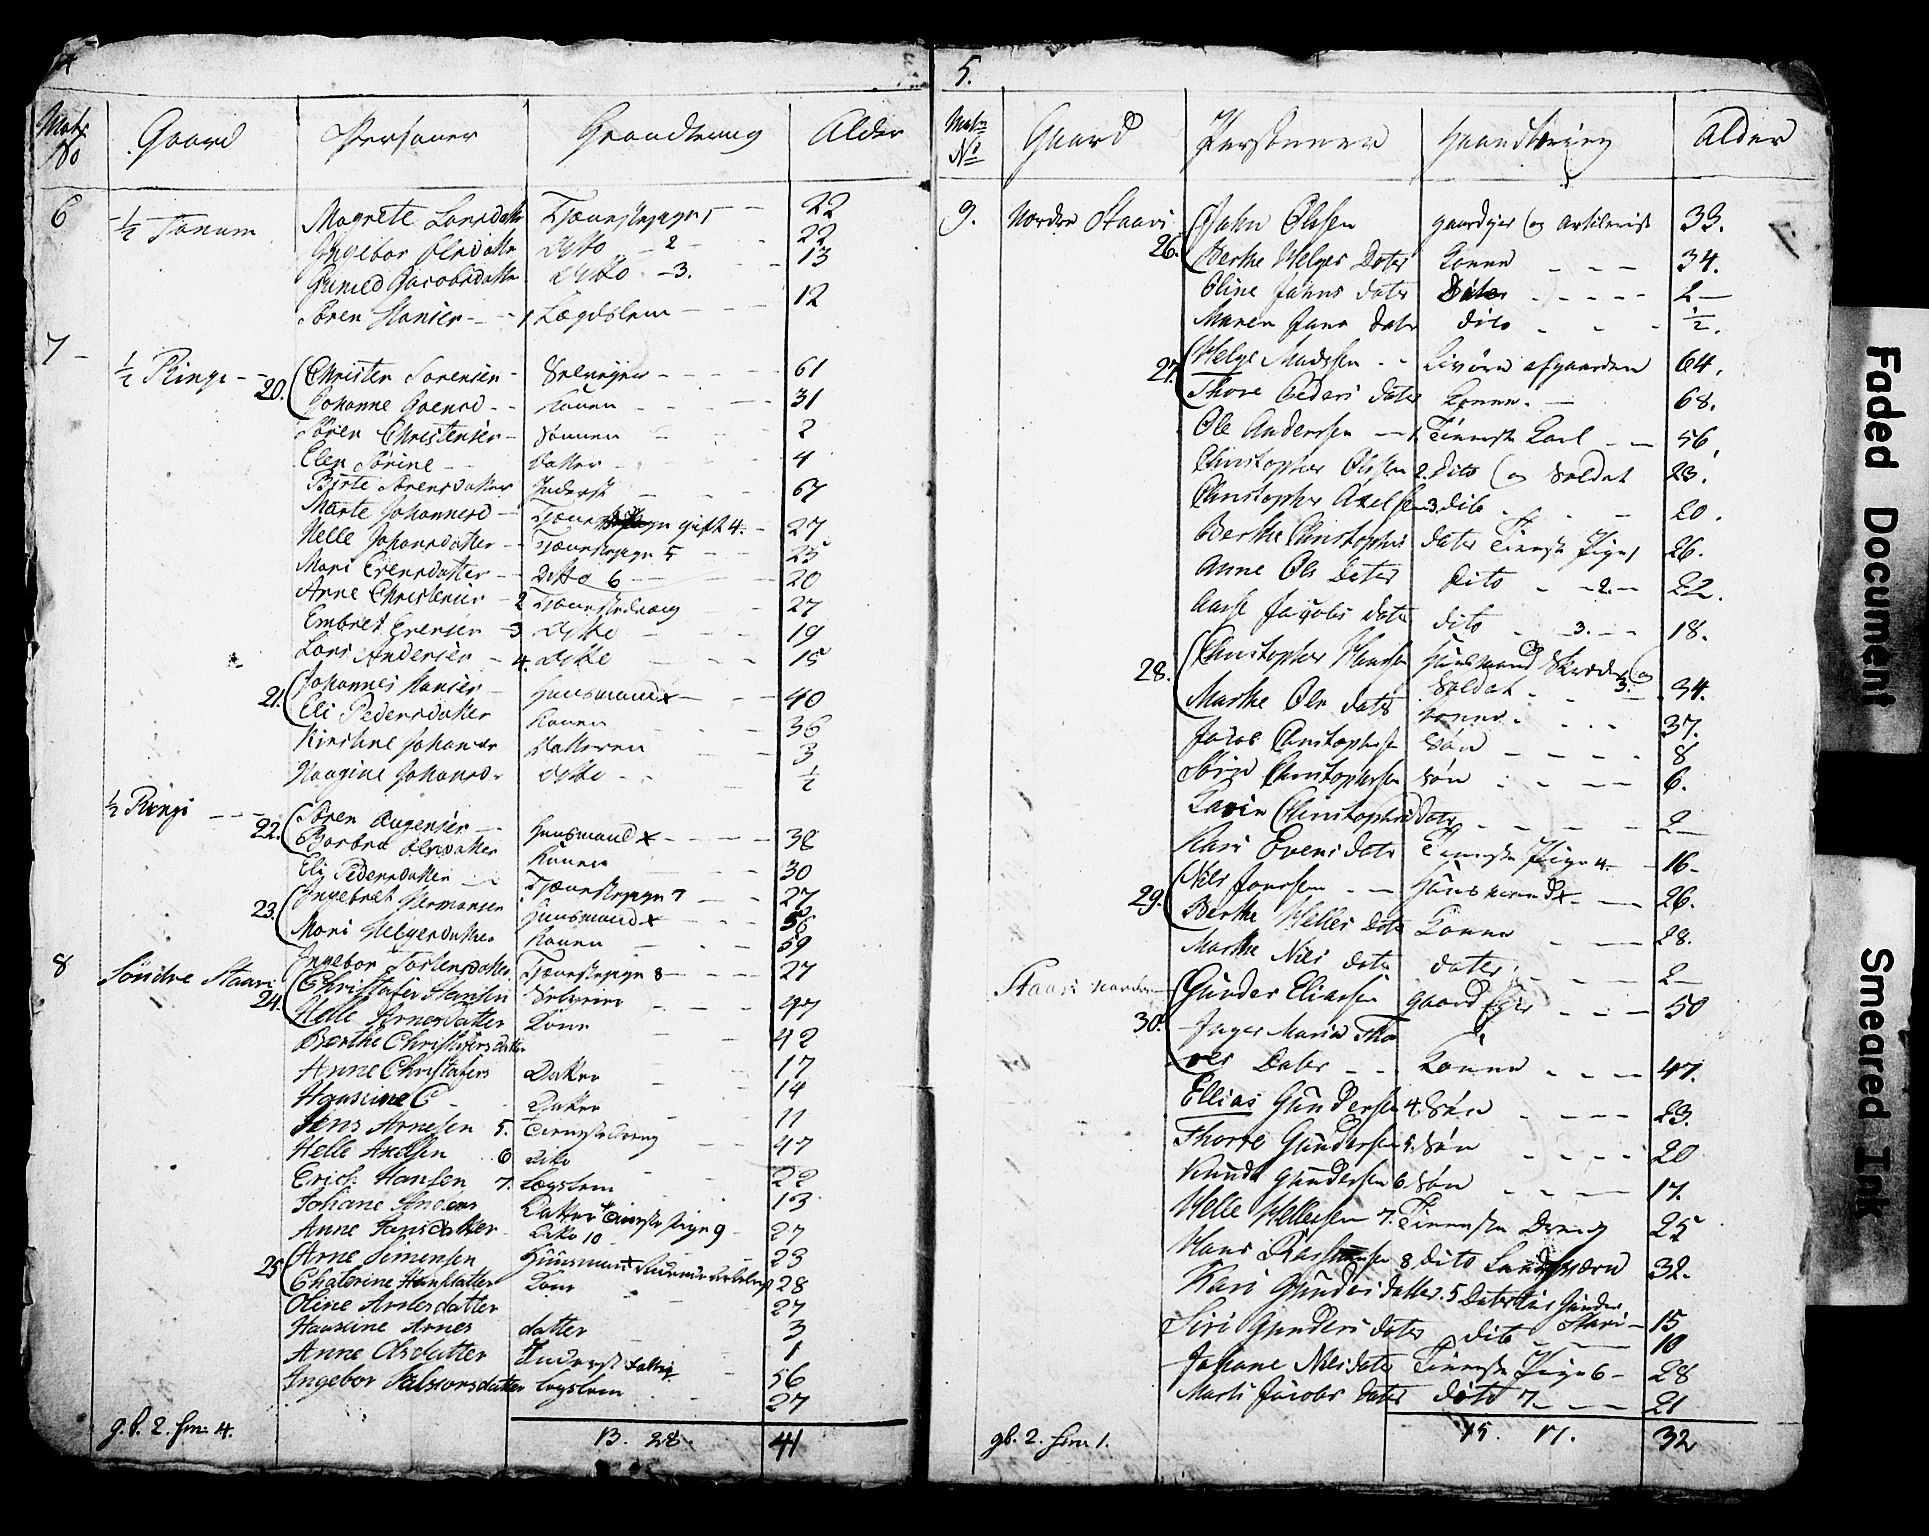 4
Matr No Gaard Personer Haandtering Alder
6 ½ Tanum Magrete Larsdatter Tjænstepige 1 22
Ingebor Olesdatter Ditto 2 22
Gunild Jacobsdatter Ditto 3. 13
Søren Hansen 1 Lægdslem 12
7 ½ Ringi 20. Christen Sørensen Selveiger 61
Johanne Goensd Konen 31
Søren Christensen Sønnen 2
Elen Sørine Datter 4
Birte Sørensdatter Inderst 67
Marte Johannesd gift 4. 27
Helle Johansdatter Tjænstepige 5 25
Mari Evensdatter Ditto 6 20
Arne Christensen 2 Tjænstedræng 27
Embret Evensen 3 Ditto 19
Lars Andersen 4. Ditto 15
21. Johannes Hansen Huusmand x 40
Eli Pedersdatter Konen 36
Kirstine Johansdr Datteren 3
Haagine Johansd. Ditto ½
½ Ringi 22. Søren Augensen Huusmand x 38
Barbra Olesdatter Konen 30
Eli Pedersdatter Tjænstepige 7 27
23. Ingebret Hermansen Huusmand x 58
Mari Helgesdatter Konen 59
Ingebor Tostensdatter Tjænstepige 8 27
8 Söndre Staavi 24. Christafer Hansen Selveier 47
Helle Arnesdatter Kone 42
Berthe Christafersdatter 17
Anne Christafers Datter 14
Hansine C Datter 11
Jens Arnesen 5. Tienistedreng 47
Helle Axelsen 6 Dito 22
Erich Hansen 7. Lægslem 13
Johane Anders Datter Tieniste Pige 9 27
Anne Hansdatter Dito 10 23
25 Arne Simensen Huusmand x 28
Chaterine Hansdatter Kone 27
Oline Arnesdatter 3
Hansine Arnes datter 1
Anne Olsdatter Inderst Fattig 56
Ingebor Halvorsdatter Legslem 27
g.b. 2. hm: 4. 13. 28. 41
5.
Matr No Gaard Personner Haandtering Alder
9. Nordre Staavi 26. John Olsen gaardejer og Artilerist 33.
Berthe Helges Dater Konne 34.
Oline Johns dater Dater 2
Maren Jana dater dito ½.
27. Helge Madssen Livöre af gaarden 64.
Thore Peders dater Konne 68.
Ole Anderssen 1. Tienneste Karl 56
Christopher Olssen 2. Dito og Soldat 23.
Christopher Axelssen 3. dito 20.
Berthe Christophers dater Tienneste Pige 1 26.
Anne Ols Dater Dito 2. 22.
Aase Jacobs dater dito 3. 18.
28. Christopher Hanssen Huusmand Skreder og
Soldat 3. 34.
Marthe Ols dater Konne 37.
Jacob Christophersen Søn 8
Christophersen Søn 6.
Karin Christophers dater 2
Kari Evens dater Tienneste Pige 4 16
29. Nils Janssen Huusmand x 26.
Berthe Helles dater Konne 28.
Marthe Nils dater dater 2
Staavi nordre 30. Gunder Eliassen gaard Ejer 50
Inger Maria Tho
res Dater Konne 47.
Ellias Gundersen 4. Søn 23.
Thorre Gundersen 5. Søn 20
Knudt Gundersen 6 Søn 17.
Helle Hellessen 7. Tienneste Dreng 25
Hans Rasmussen 8 dito Landværn 32.
Kari Gunders datter. 5 Dater til Gunder
Staavi 15
Siri Gunders dater dito 10
Johane Nils dater Tienneste Pige 6 28
Marti Jacobs dater dito 7 21
gb. 2. hm 1. 15. 17. 32
Faded Document
Smeared Ink